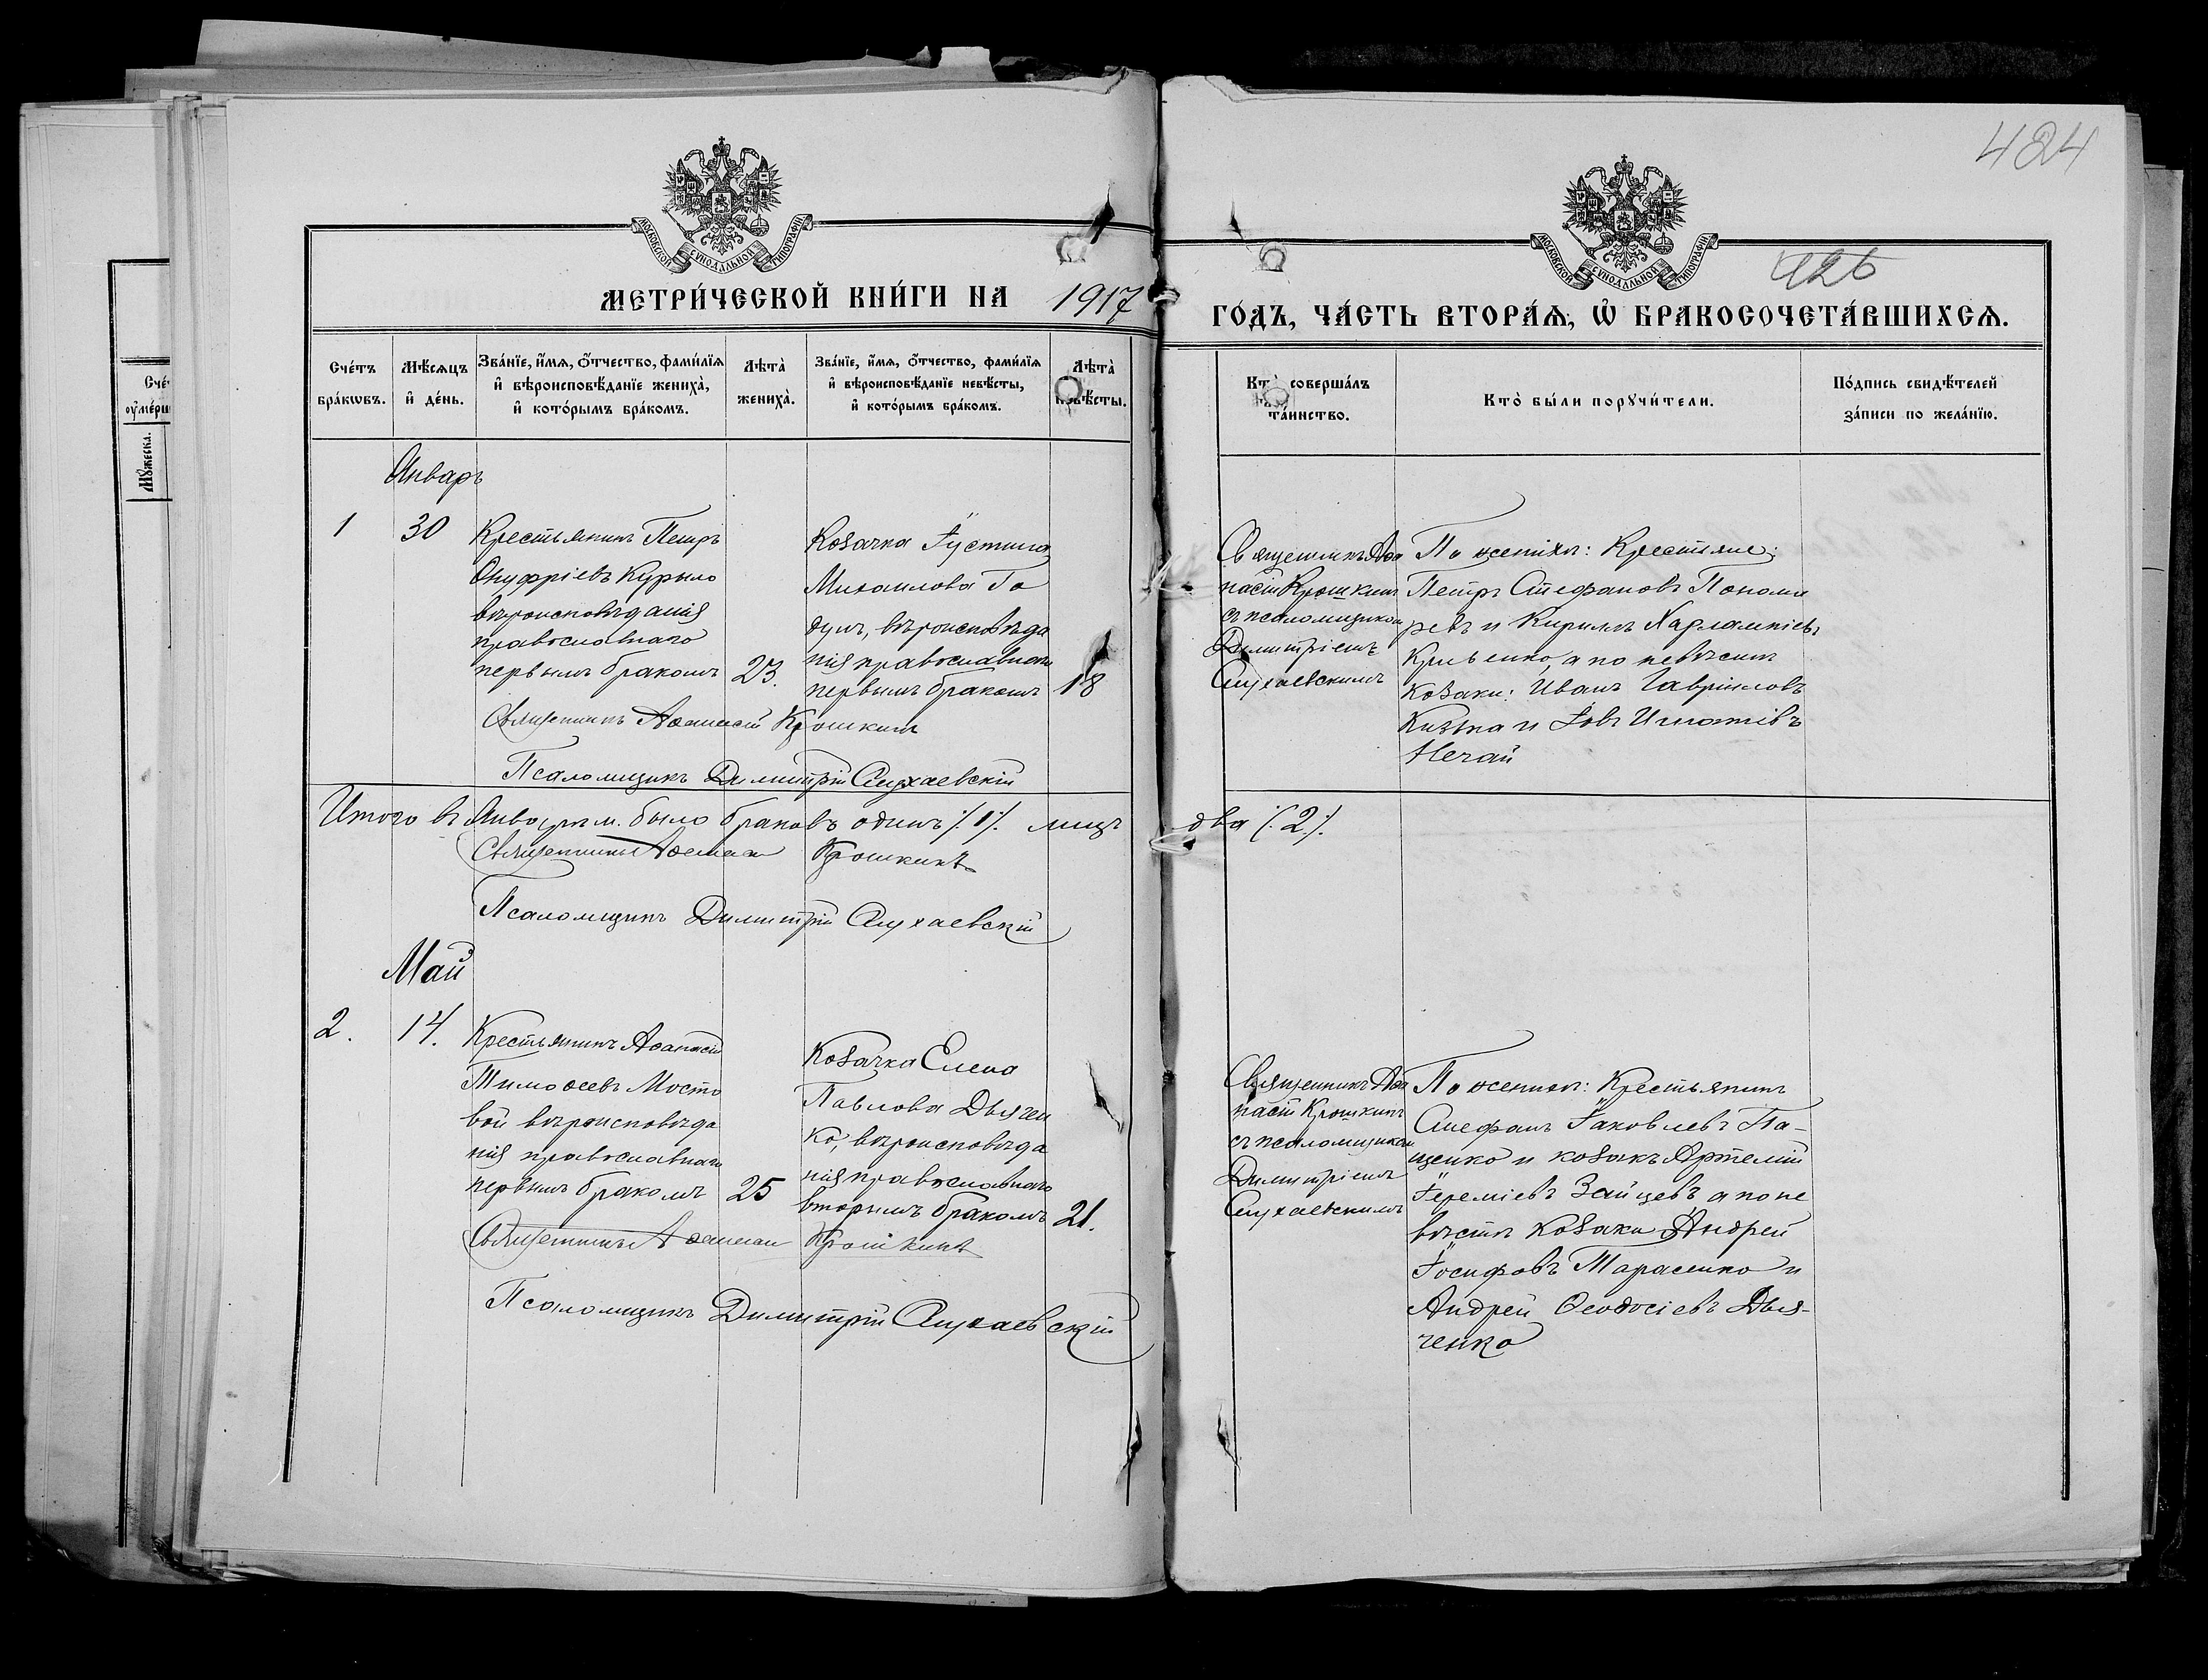 424
426
МОСКОВСКОЙ СѴНОДАЛЬНОЙ ТИПОГРАФІИ
МОСКОВСКОЙ СѴНОДАЛЬНОЙ ТИПОГРАФІИ
МЕТРИ́ЧЕСКОЙ КНИ́ГИ НА 1917
ГО́ДЪ, ЧА́СТЬ ВТОРА́Я, Ѡ БРАКОСОЧЕТА́ВШИХСЯ.
Сче́тъ бра́кѡвъ.
Мѣ́сяцъ и де́нь.
Зва́нїе, и́мя, о́тчество, фами́лїя и вѣроисповѣ́данїе жениха̀, и кото́рымъ бра́комъ.
Лѣта̀ жениха̀.
Зва́нїе, и́мя, о́тчество, фами́лїя и вѣроисповѣ́данїе невѣ́сты, и кото́рымъ бра́комъ.
Лѣта̀ невѣ́сты.
Кто̀ соверша́лъ та́инство.
Кто̀ бы́ли порꙋчи́тели.
По́дпись свидѣ́телей за́писи по жела́нїю.
Январь
1
30
Крестьянинъ Петръ
Онуфріевъ Курыло
вѣроисповѣданія
православнаго
первымъ бракомъ
23.
Козачка Іустина
Михаилова Го
дунъ, вѣроисповѣда
нія православнаго
первымъ бракомъ
18
Священникъ Аѳа
насій Крошкинъ
съ псаломщикомъ
Димитріемъ
По женихѣ: Крестьяне:
Петръ Стефановъ Понома
ревъ и Кириллъ Харлампіевъ
а по невѣстѣ
козаки: Иванъ Гавріиловъ
и Іовъ Игнатіевъ
Нечай
Священникъ Аѳанасій Крошкинъ
Псаломщикъ Димитрій
Итого въ Январѣ м. было браковъ одинъ /.1/. лицъ два /.2/.
Священникъ Аѳанасій Крошкинъ
Псаломщикъ Димитрій
Май
2.
14.
Крестьянинъ Аѳанасій
Тимоѳеевъ Мосто
вой вѣроисповѣда
нія православнаго
первымъ бракомъ
25
Козачка Елена
Павлова Дьячен
ко, вѣроисповѣда
нія православнаго
вторымъ бракомъ
21.
Священникъ Аѳа
насій Крошкинъ
съ псаломщикомъ
Димитріемъ
По женихѣ: Крестьянинъ
Стефанъ Іаковлевъ Па-
щенко и козакъ Артемій
Іереміевъ Зайцевъ а по не
вѣстѣ козаки Андрей
Іосифовъ Тарасенко и
Андрей Ѳеодосіевъ Дья-
ченко
Священникъ Аѳанасій Крошкинъ
Псаломщикъ Димитрій
Сче́
оумерш
Мꙋжеска.